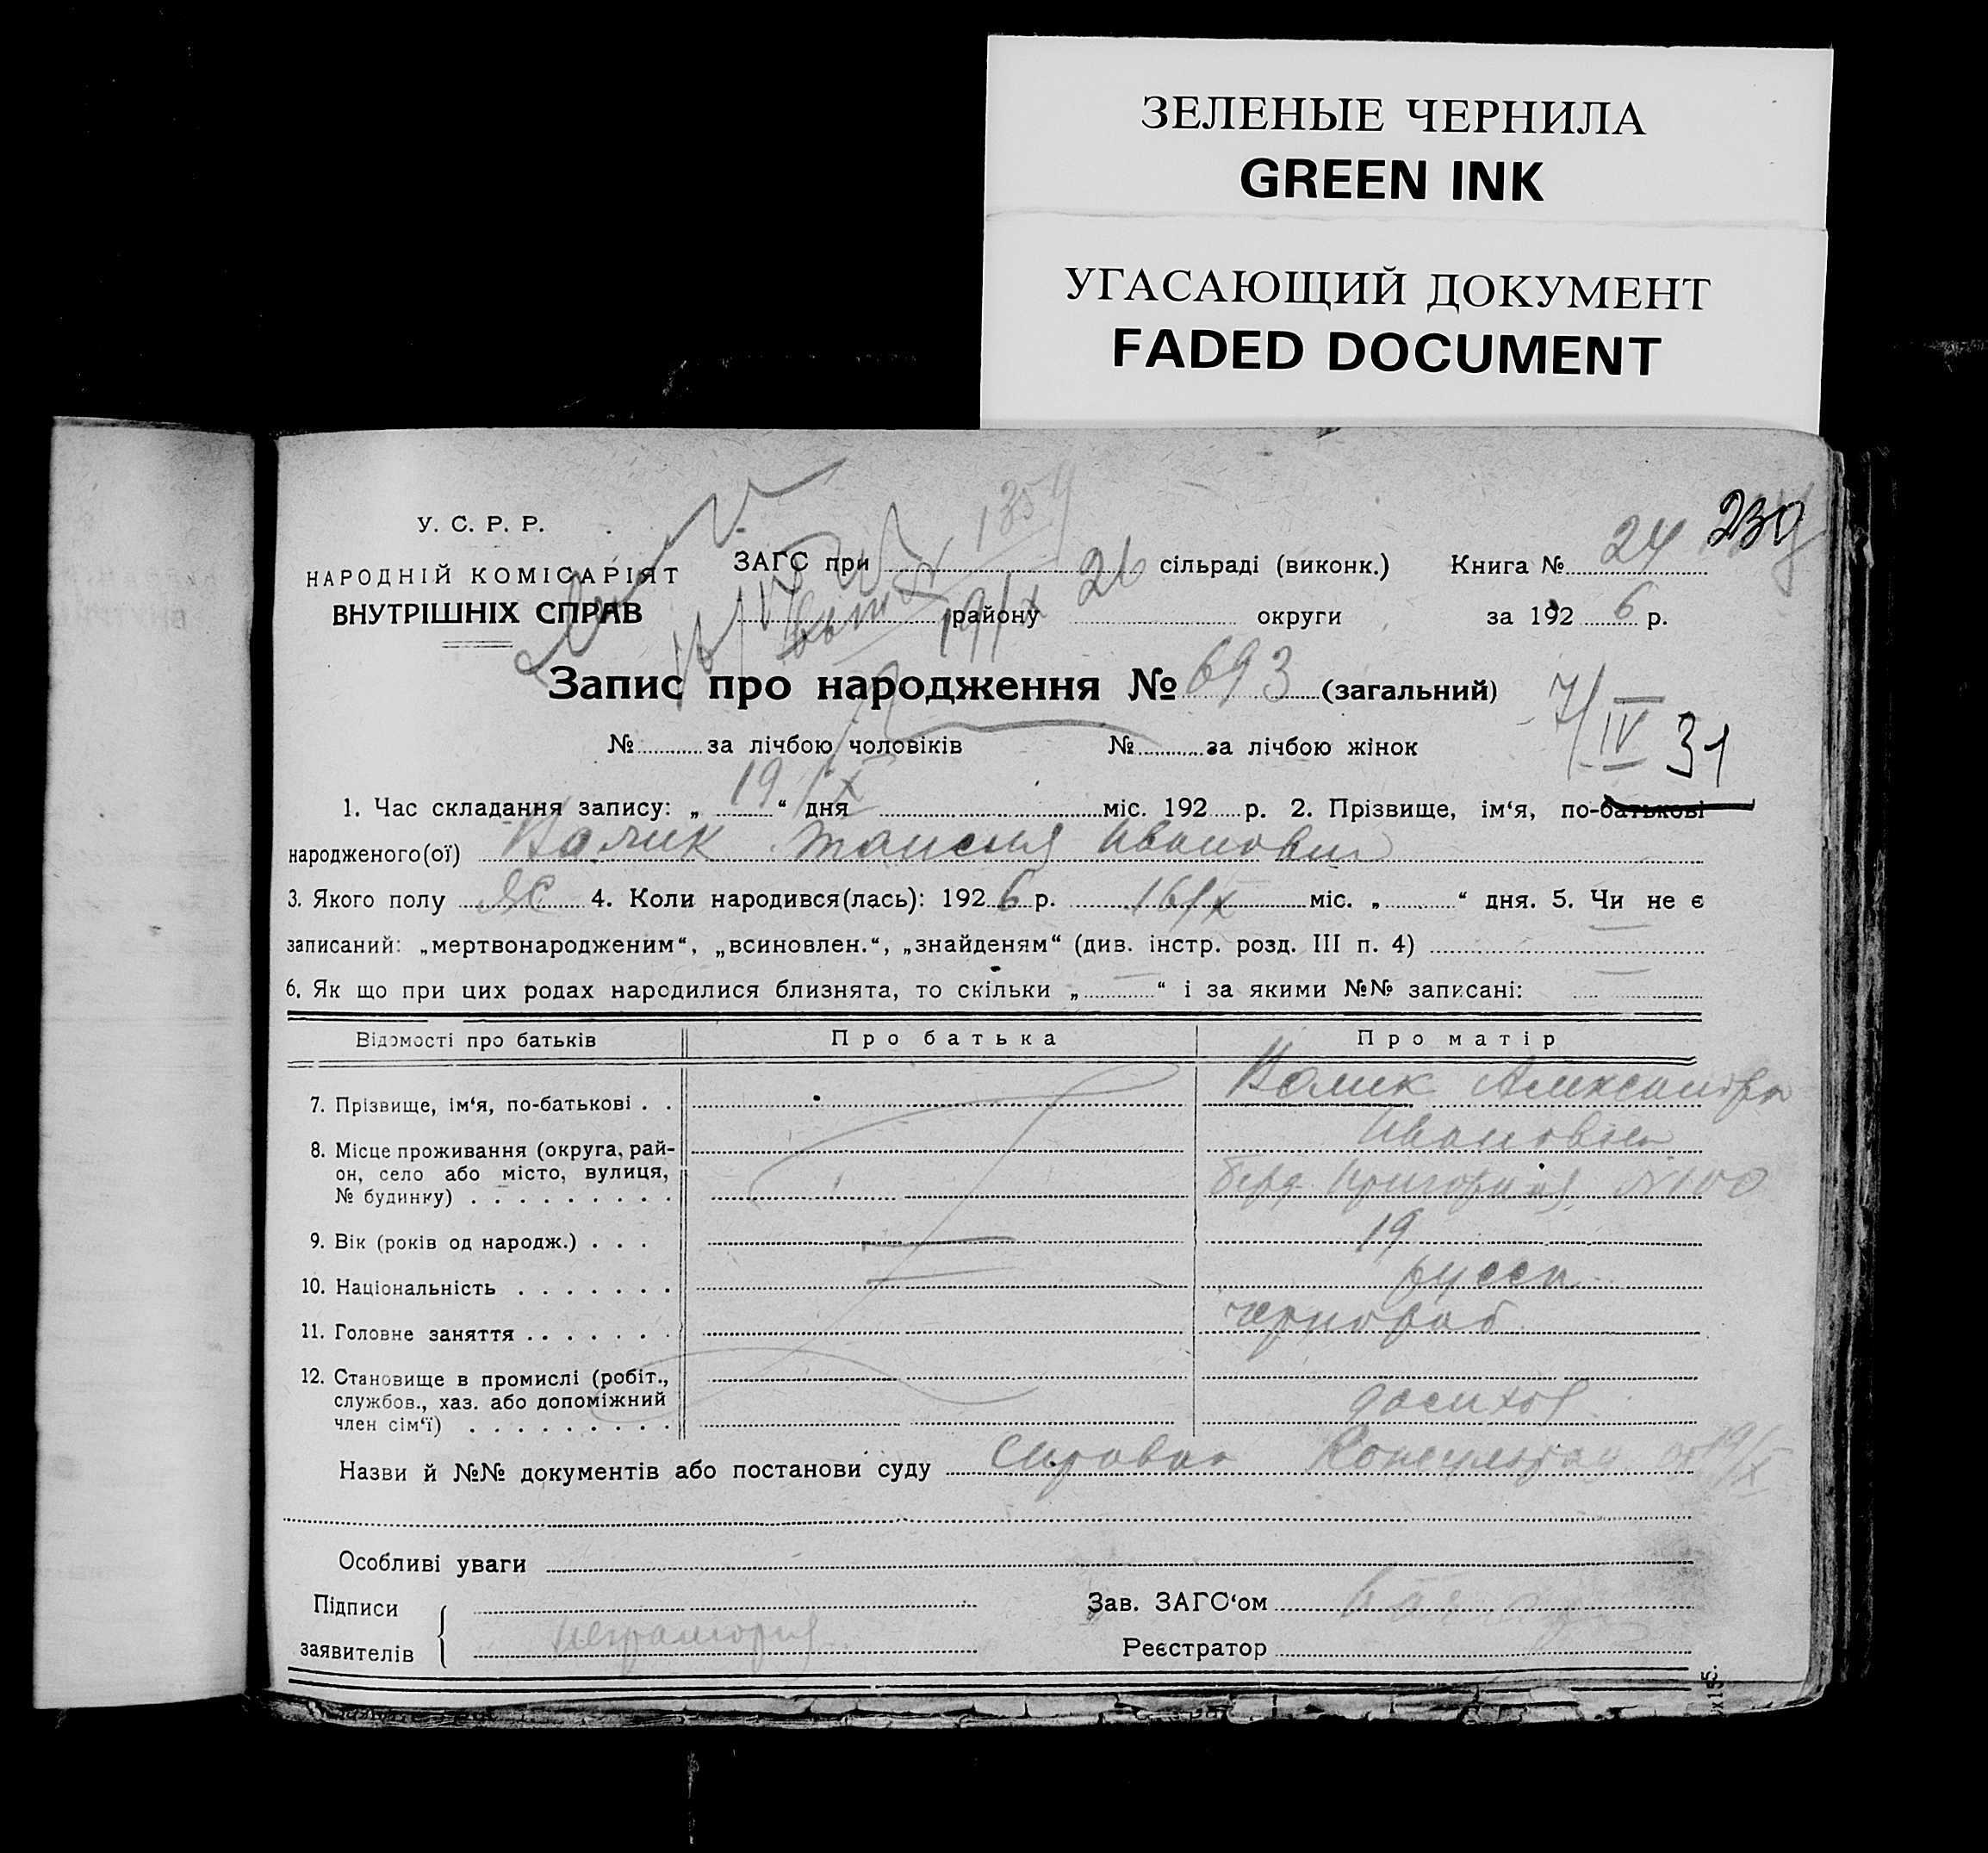 ЗЕЛЕНЫЕ ЧЕРНИЛА
GREEN INK
УГАСАЮЩИЙ ДОКУМЕНТ
FADED DOCUMENT
239
У. С. Р. Р.
НАРОДНІЙ КОМІСАРІЯТ
ВНУТРІШНІХ СПРАВ
1359
ЗАГС при сільраді (виконк.) Книга № 24
19/X 26
району округи за 1926 р.
Запис про народження № 693 (загальний)
7/IV 31
№ за лічбою чоловіків № за лічбою жінок
1. Час складання запису: „ 19/X “ дня міс. 192 р. 2. Прізвище, ім‘я, по-батькові
народженого(ої) Валик Таисия Ивановна
3. Якого полу Ж 4. Коли народився(лась): 1926 р. 16/X міс. „ “ дня. 5. Чи не є
записаний: „мертвонародженим“, „всиновлен.“, „знайденям“ (див. інстр. розд. III п. 4)
6. Як що при цих родах народилися близнята, то скільки „ “ і за якими №№ записані:
Відомості про батьків Про батька Про матір
7. Прізвище, ім‘я, по-батькові Валик Александра
Ивановна
8. Місце проживання (округа, рай-
он, село або місто, вулиця,
№ будинку) №100
9. Вік (років од народж.) 19
10. Національність русск
11. Головне заняття чернораб
12. Становище в промислі (робіт.,
службов., хаз. або допоміжний
член сім‘ї)
Назви й №№ документів або постанови суду справка Консультац от 19/X
Особливі уваги
Підписи
заявителів неграмотная
Зав. ЗАГС‘ом
Реєстратор